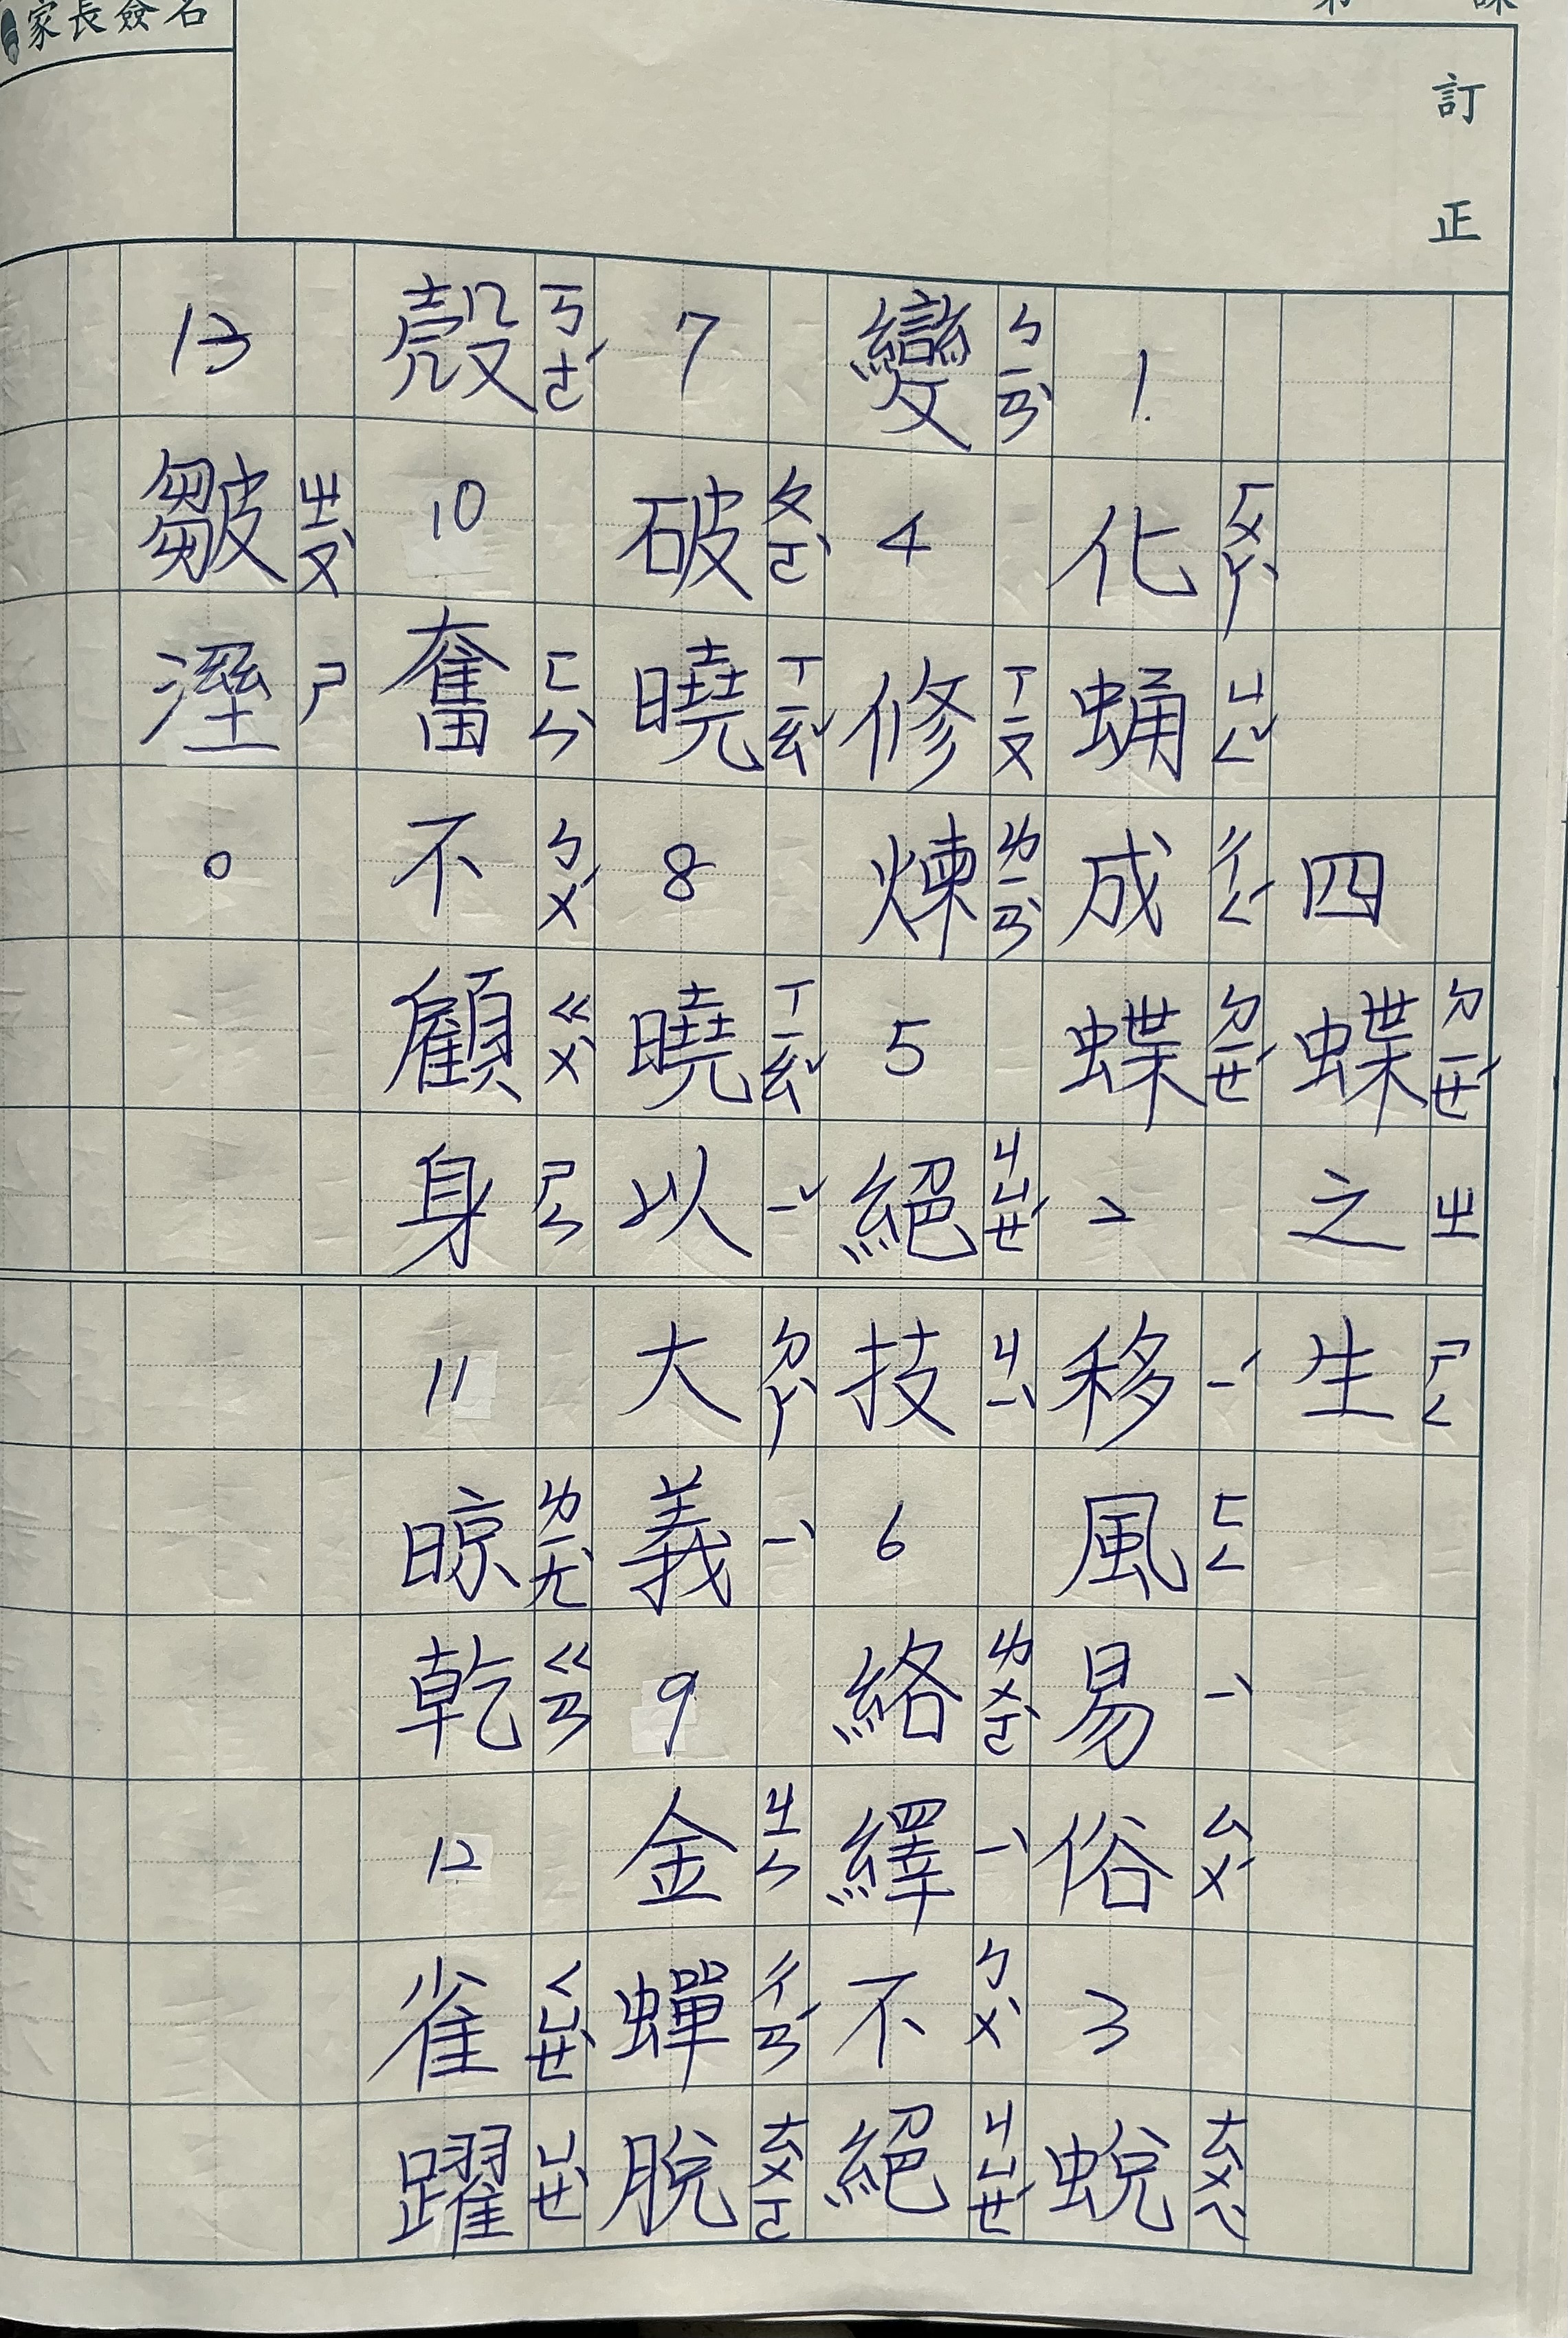 家長簽名
訂正
四蝶ㄉㄧㄝˊ之ㄓ生ㄕㄥ
1.化ㄏㄨㄚˋ蛹ㄩㄥˇ成ㄔㄥˊ蝶ㄉㄧㄝˊ2移ㄧˊ風ㄈㄥ易ㄧˋ俗ㄙㄨˊ3蛻ㄊㄨㄟˋ
變ㄅㄧㄢˋ4修ㄒㄧㄡ煉ㄌㄧㄢˋ5絕ㄐㄩㄝˊ技ㄐㄧˋ6絡ㄌㄨㄛˋ繹ㄧˋ不ㄅㄨˋ絕ㄐㄩㄝˊ
7破ㄆㄛˋ曉ㄒㄧㄠˇ8曉ㄒㄧㄠˇ以ㄧˇ大ㄉㄚˋ義ㄧˋ9金ㄐㄧㄣ蟬ㄔㄢˊ脫ㄊㄨㄛ
殼ㄎㄜˊ10奮ㄈㄣˋ不ㄅㄨˊ顧ㄍㄨˋ身ㄕㄣ11晾ㄌㄧㄤˋ乾ㄍㄢ12雀ㄑㄩㄝˋ躍ㄩㄝˋ
13皺ㄓㄡˋ溼ㄕ。